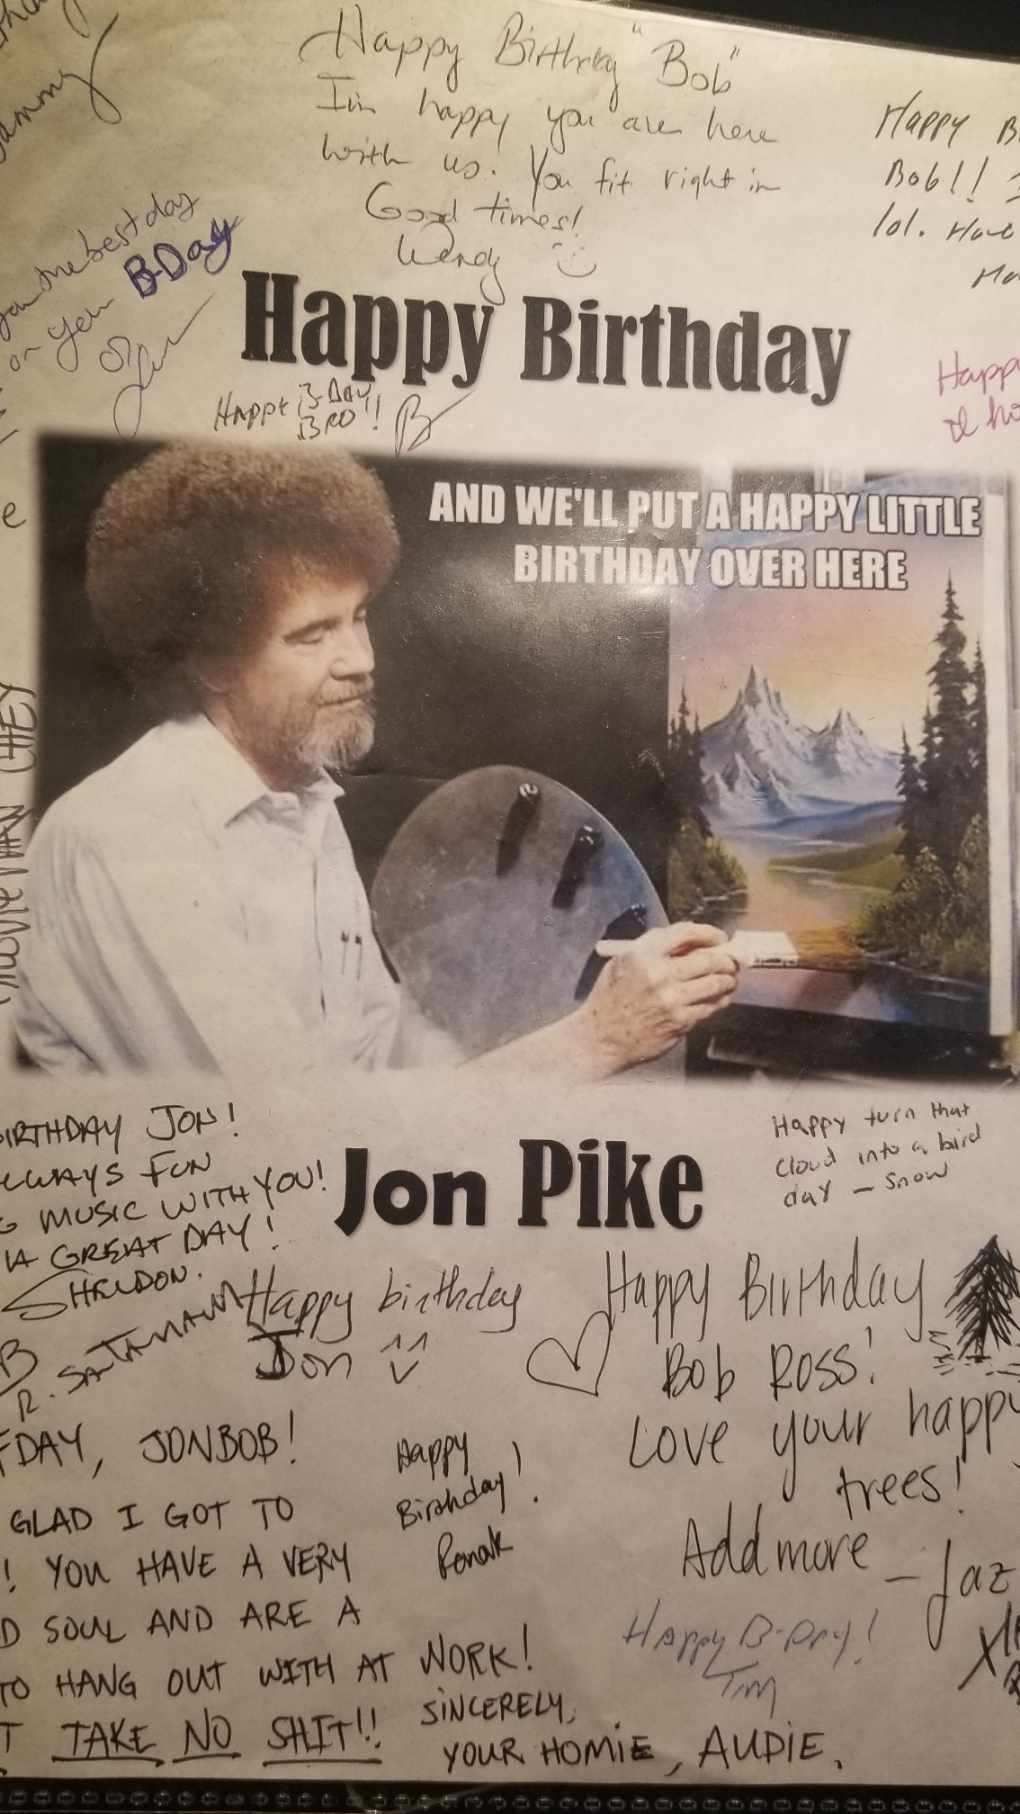 Happy Birthday "Bob"
I'm happy you are here
with us. You fit right in
Good times!
Wendy
Happy
Bob!!
lol. Have
the best day
on your B-Day
Happy Birthday
HAPPY B-DAY
BRO!!
Happy
AND WE'LL PUT A HAPPY LITTLE
BIRTHDAY OVER HERE
BIRTHDAY JON!
ALWAYS FUN
MUSIC WITH YOU!
A GREAT DAY!
SHELDON.
Jon Pike
Happy turn that
cloud into a bird
day - Snow
Happy birthday
Jon
Happy Birthday
Bob Ross!
Love your happy
trees!
Add more
- Jaz
DAY, JONBOB!
GLAD I GOT TO
! YOU HAVE A VERY
SOUL AND ARE A
TO HANG OUT WITH AT WORK!
TAKE NO SHIT!!
SINCERELY,
YOUR HOMIE, AUDIE.
Happy
Birthday!
Ronak
Happy B-Day!
Tim